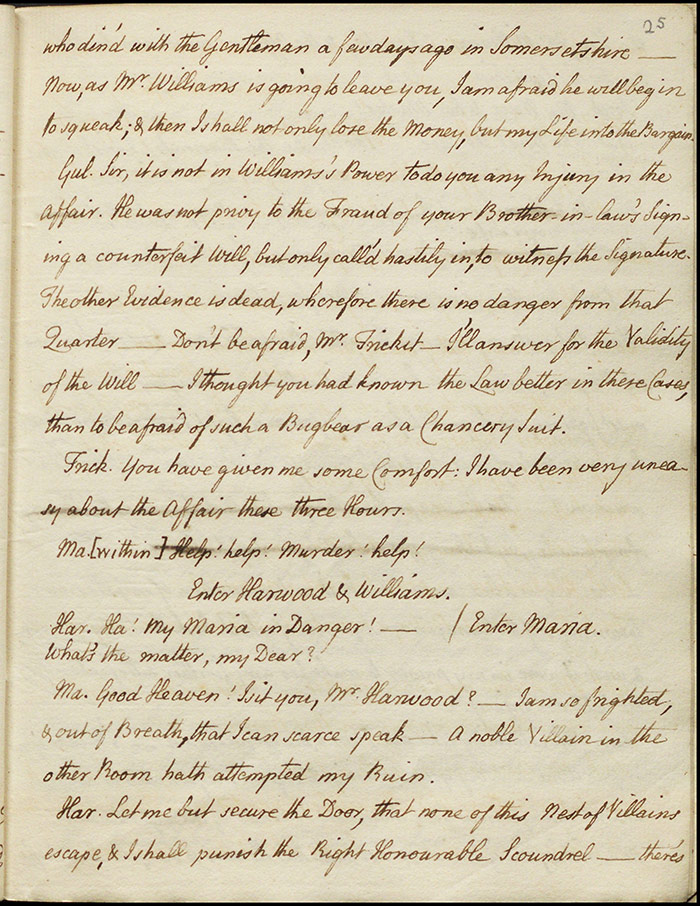 25
who din'd with the Gentleman a few days ago in Somersetshire —
Now, as Mr. Williams is going to leave you, I am afraid he will begin
to squeak; & then I shall not only lose the Money, but my Life into the Bargain.
Gul. Sir, it is not in Williams's Power to do you any Injury in the
Affair. He was not privy to the Fraud of your Brother-in-law's Sign-
ing a counterfeit Will, but only call'd hastily in, to witness the Signature.
The other Evidence is dead, wherefore there is no danger from that
Quarter — Don't be afraid, Mr. Trickit — I'll answer for the Validity
of the Will — I thought you had known the Law better in these Cases,
than to be afraid of such a Bugbear as a Chancery Suit.
Trick. You have given me some Comfort: I have been very unea-
sy about the Affair these three Hours.
Ma. [within] Help! help! Murder! help!
Enter Harwood & Williams.
Har. Ha! My Maria in Danger! — / Enter Maria.
What's the matter, my Dear?
Ma. Good Heaven! Is it you, Mr. Harwood? — I am so frighted,
& out of Breath, that I can scarce speak — A noble Villain in the
other Room hath attempted my Ruin.
Har. Let me but secure the Door, that none of this Nest of Villains
escape, & I shall punish the Right Honourable Scoundrel — there's